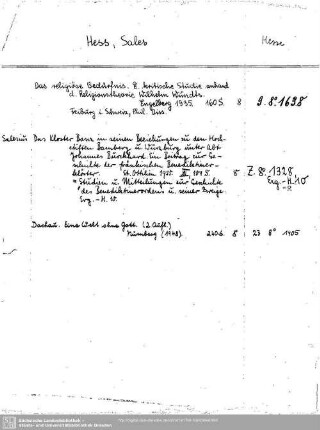 Hess, Sales
Hesse
Das religiöse Bedürfnis. E. kritische Studie anhand
d. Religionstheorie Wilhelm Wundts.
Engelberg 1935. 160 S. 8 9.8°.1698
Freiburg i. Schweiz, Phil. Diss.
Salesius Das Kloster Banz in seinen Beziehungen zu den Hoch-
stiften Bamberg u. Würzburg unter Abt
Johannes Burckhard. Ein Beitrag zur Ge-
schichte der fränkischen Benediktiner-
klöster. St. Ottilien 1935. 8 Z. 8°. 1328
= Studien u. Mitteilungen zur Geschichte Erg.-H. 10
des Benediktinerordens u. seiner Zweige
Erg.-H. 10.
Dachau. Eine Welt ohne Gott. (2. Aufl.)
Nürnberg (1948). 240 S. 8 23 8° 1405
Sächsische Landesbibliothek